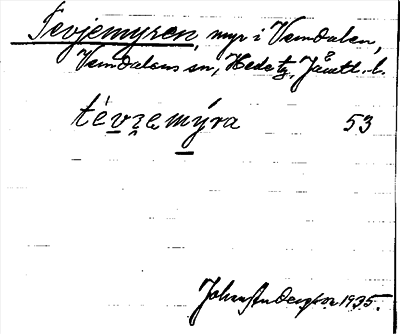 Tevjemyren, myr i Vemdalen,
Vemdalens sn, Hede tg, Jämtl. l.
tévze mýra 53
Johan Anderson 1935.